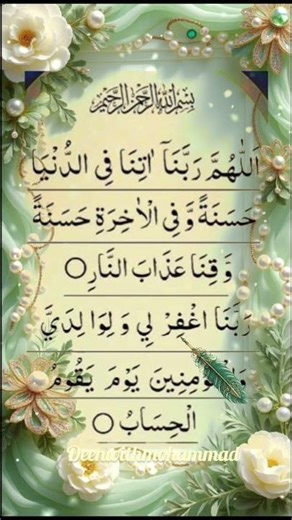 بسم الله الرحمن الرحيم
اَللّٰهُمَّ رَبَّنَآ اٰتِنَا فِي الدُّنْيَا
حَسَنَةً وَّ فِي الْاٰخِرَةِ حَسَنَةً
وَّ قِنَا عَذَابَ النَّارِ ○
رَبَّنَا اغْفِرْ لِي وَ لِوَا لِدَيَّ
وَالْمُؤْمِنِينَ يَوْمَ يَقُومُ
الْحِسَابُ ○
Deenwithmohammad